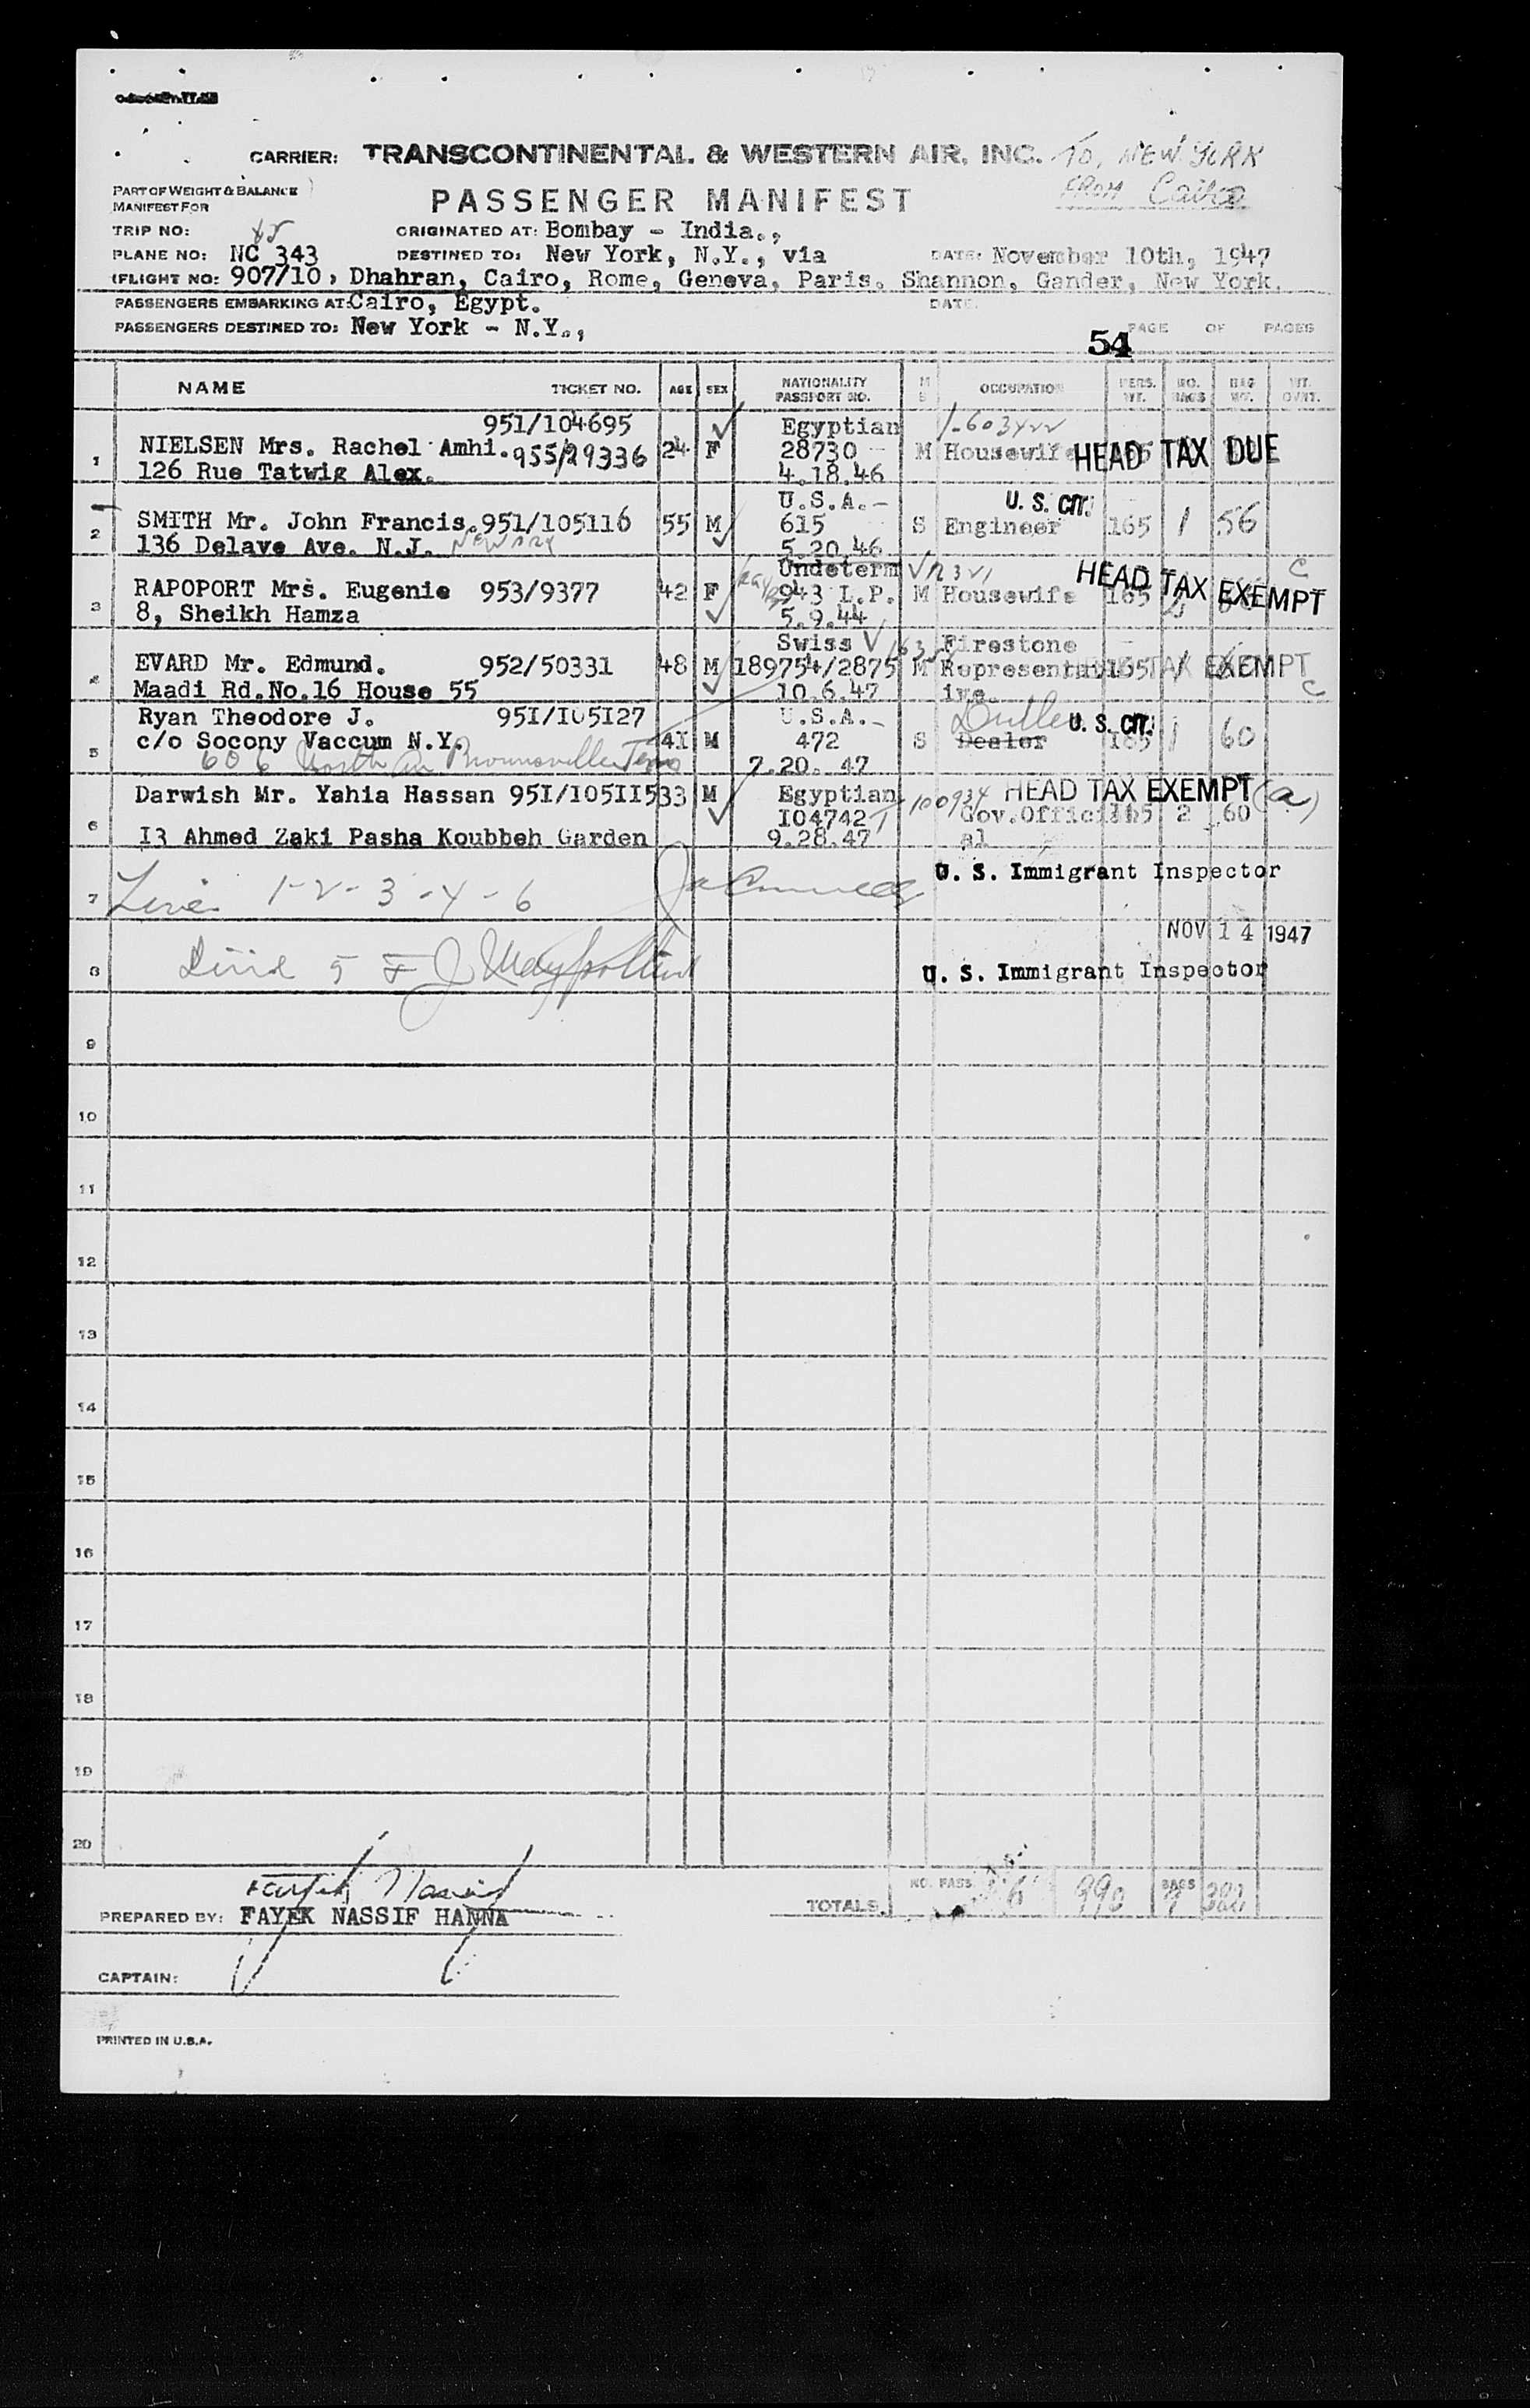 CARRIER: TRANSCONTINENTAL & WESTERN AIR, INC. TO, NEW YORK
FROM Cairo
PART OF WEIGHT & BALANCE
MANIFEST FOR
PASSENGER MANIFEST
TRIP NO: ORIGINATED AT: Bombay - India.,
PLANE NO: NC 343 DESTINED TO: New York, N.Y., via DATE: November 10th, 1947
(FLIGHT NO: 907/10, Dhahran, Cairo, Rome, Geneva, Paris. Shannon, Gander, New York.
PASSENGERS EMBARKING AT: Cairo, Egypt. DATE:
PASSENGERS DESTINED TO: New York - N.Y.,
54 PAGE OF PAGES
NAME TICKET NO. AGE SEX NATIONALITY PASSPORT NO. M S OCCUPATION PERS. WT. NO. BAGS BAG WT. WT. OVRT.
951/104695 Egyptian
1 NIELSEN Mrs. Rachel Amhi. 955/29336 24 F 28730 M Housewife HEAD TAX DUE
126 Rue Tatwig Alex. 4.18.46
U.S.A.- U. S. CIT.
2 SMITH Mr. John Francis. 951/105116 55 M 615 S Engineer 165 1 56
136 Delave Ave. N.J. NEWARK 5.20.46
Undeterm
3 RAPOPORT Mrs. Eugenie 953/9377 42 F 943 L.P. M Housewife 165 HEAD TAX EXEMPT C
8, Sheikh Hamza 5.9.44
Swiss Firestone
4 EVARD Mr. Edmund. 952/50331 48 M 189754/2875 M Representat 165 1 TAX EXEMPT
Maadi Rd.No.16 House 55 10.6.47 ive. C
Ryan Theodore J. 95I/I05I27 U.S.A.- U. S. CIT.
5 c/o Socony Vaccum N.Y. 4I M 472 S Dealer 165 1 60
606 North Brownsville Texas 7.20. 47
Darwish Mr. Yahia Hassan 95I/I05II5 33 M Egyptian 100934 HEAD TAX EXEMPT (a)
6 I04742 Gov.Offici 2 60
I3 Ahmed Zaki Pasha Koubbeh Garden 9.28.47 al
U. S. Immigrant Inspector
7 Line 1-2-3-4-6
NOV 14 1947
8 Line 5
U. S. Immigrant Inspector
9
10
11
12
13
14
15
16
17
18
19
20
PREPARED BY: FAYEK NASSIF HANNA
TOTALS. NO. PASS 6 990 BAGS 9
CAPTAIN:
PRINTED IN U.S.A.